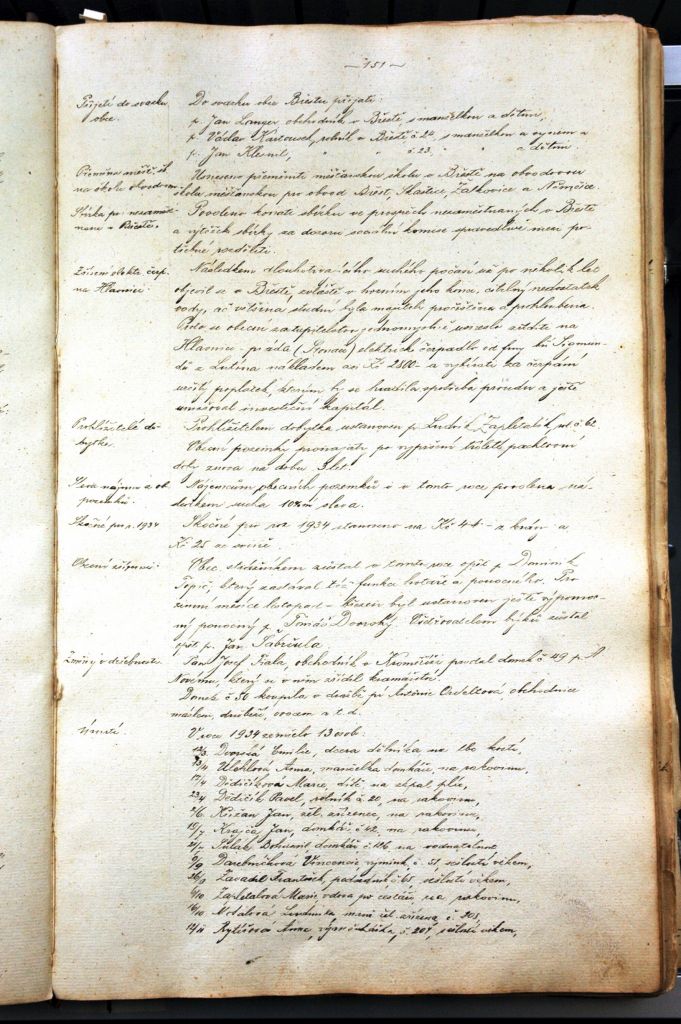 — 151 —
Přijetí do svazku
obce.
Do svazku obce Břestu přijati:
p. Jan Langer obchodník v Břestě s manželkou a dětmi,
p. Václav Karousch, rolník v Břestě č. s manželkou a synem a
p. Jan Klesnil, č. 23. a dětmi
na školu obvodovou
Usneseno přeměniti měšťanskou školu v Břestě na obvodovou
školu měšťanskou pro obvod Břest, Skaštice, Žalkovice a Němčice.
Sbírka pro nezaměst-
nané v Břestě.
Povoleno konati sbírku ve prospěch nezaměstnaných v Břestě
a výtěžek sbírky za dozoru sociální komise spravedlivě mezi po-
třebné rozděliti.
Zřízení elektr. čerp.
na Hlavnici
Následkem dlouhotrvajícího suchého počasí už po několik let
objevil se v Břestě, zvláště v horním jeho konci, citelný nedostatek
vody, ač většina studní byla majiteli pročištěna a prohloubena.
Proto se obecní zastupitelstvo jednomyslně usneslo zříditi na
Hlavnici elektrické čerpadlo od firmy Sigmun-
da z Lutína nákladem asi Kč 2800- a vybírati za čerpání
určitý poplatek, kterým by se hradila spotřeba proudu a ještě
umořoval investiční kapitál.
Prohlížitelé do-
bytka.
Prohlížitelem dobytka ustanoven p. Ludvík Zapletalík, č. 62
Obecní pozemky pronajaty po vypršení tříleté pachtovní
doby znova na dobu 3 let.
Sleva nájmu z ob.
pozemků.
Nájemcům obecních pozemků i v tomto roce povolena ná-
sledkem sucha 10%ní sleva.
Skočné pro r. 1934
Skočné pro rok 1934 stanoveno na Kč 44- z krávy a
Kč 25 ze svině.
Obecní zřízenci
Obec. strážníkem zůstal v tomto roce opět p. Dominik
Topič, který zastával též funkci hotaře a ponocného. Pro
zimní měsíce listopad - březen byl ustanoven ještě výpomoc-
ný ponocný p. Tomáš Dvorský. Ošetřovatelem býků zůstal
opět p. Jan Fabiula.
Změny v držebnosti
Pan Josef Fiala, obchodník v Kroměříži prodal domek č 49 p. A.
Novému, který si v něm zřídil kramářství.
Domek č 50 koupila v dražbě pí Antonie Osvěltová, obchodnice
máslem, drůbeží, ovocem a t.d.
Úmrtí
V roce 1934 zemřelo 13 osob:
Dvorská Emilie, dcera dělníka na tbc kostí,
Ulehlová Anna, manželka domkáře, na rakovinu,
17/4 Dědičíková Marie, dítě, na zápal plic,
23/4 Dědičík Pavel, rolník č. 20, na rakovinu,
2/6 Křižan Jan, žel. zřízenec, na rakovinu,
15/7 Krajča Jan, domkář č. 42, na rakovinu,
21/7 Pulak Bohumil domkář č. 116 na vodnatelnost
9/9 Darebníčková Vincencie výmink. č. 51 sešlostí věkem,
26/9 Zavadil František, podruh č. 65 sešlostí věkem,
6/10 Zapletalová Marie, vdova po cestáři, na rakovinu,
16/10 Ludmila, žel. zřízence č. 208,
14/11 Rytířová Anna, výměnkářka, č. 207, sešlostí věkem,